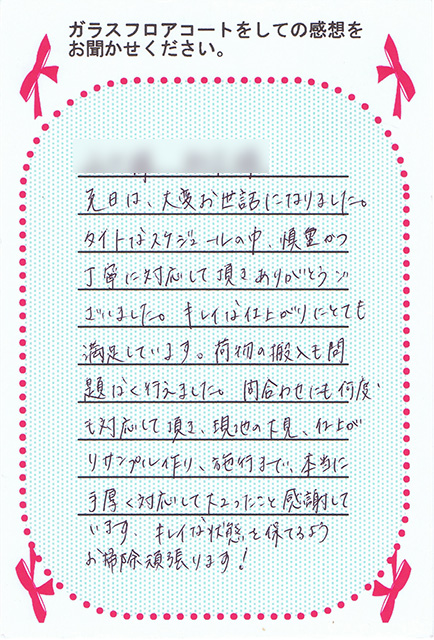 ガラスフロアコートをしての感想を
お聞かせください。
先日は、大変お世話になりました。
タイトなスケジュールの中、慎重かつ
丁寧に対応して頂きありがとうご
ざいました。キレイな仕上がりにとても
満足しています。荷物の搬入も問
題なく行えました。問合わせにも何度
も対応して頂き、現地の下見、仕上が
りサンプル作り、施行まで、本当に
手厚く対応して下さったこと感謝して
います。キレイな状態を保てるよう
お掃除頑張ります!